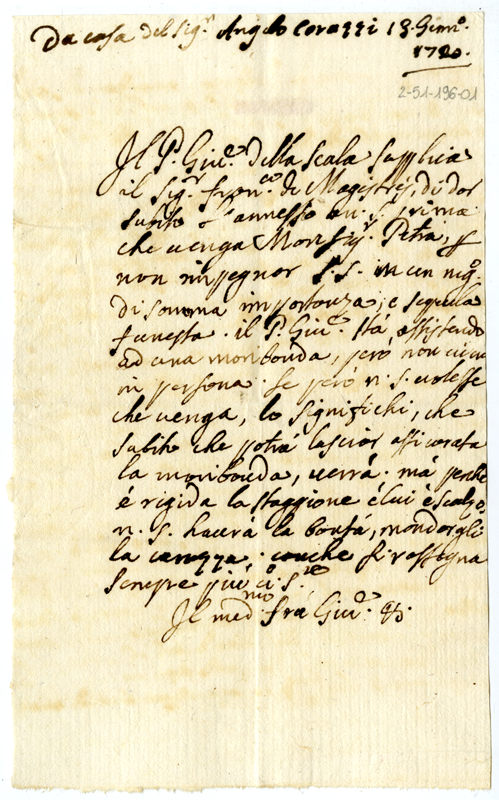 Da casa del Sig.r Angelo Corazzi 18 Genn.o
1720.
2-51-196-01
Il P. Giu.e della Scala supplica
il Sig.r Fran.co de Magistris, di dar
subito l'annesso a N. S. prima
che venga Monsig.r Petra, p
non impegnar S. S. in un neg.o
di somma importanza, e sequela
funesta. il P. Giu.e stà assistendo
ad una moribonda, però non viene
in persona. Se però N. S. volesse
che venga, lo significhi, che
subito che potrà lasciar assicurata
la moribonda, verrà. mà perche
è rigida la staggione e lui è scalzo,
N. S. haverà la bontà, mandargli
la carozza. con che si rassegna
sempre più
Il med.mo fra Giu.e